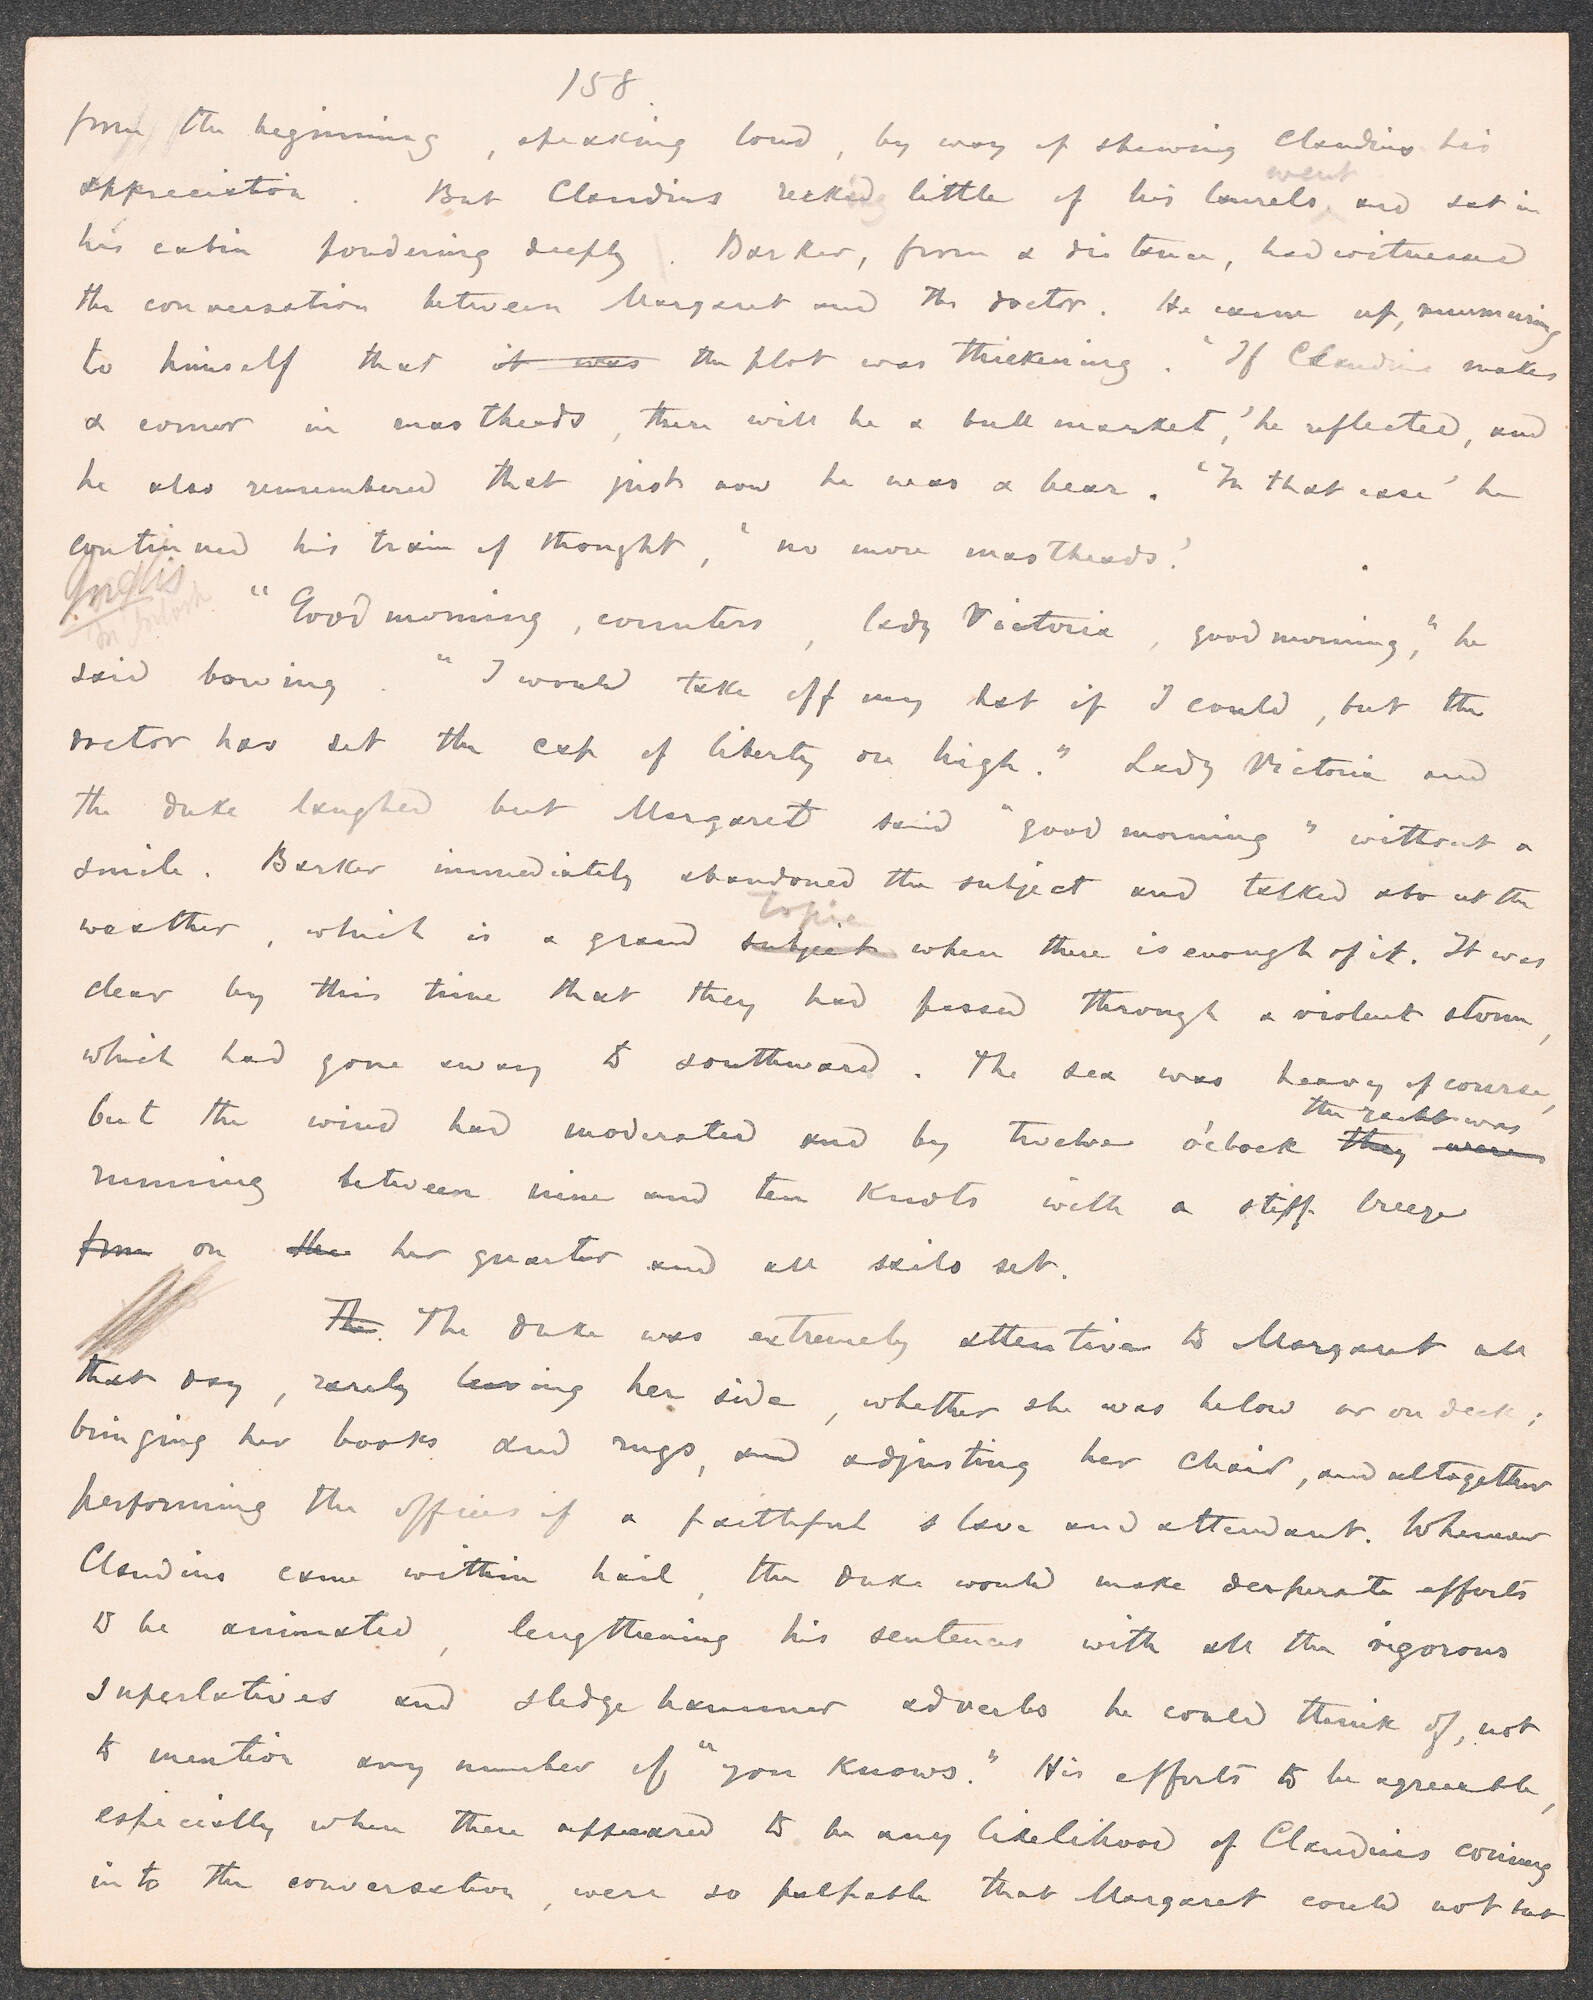 158
from the beginning, speaking loud, by way of shewing Claudius his
went
appreciation. But Claudius recked little of his laurels and sat in
his cabin pondering deeply. Barker, from a distance, had witnessed
the conversation between Margaret and the doctor. He came up, murmuring
to himself that it was the plot was thickening. "If Claudius makes
a corner in mastheads, there will be a bull market,' he reflected, and
he also remembered that just now he was a bear. 'In that case' he
continued his train of thought, 'no more mastheads.'
Inglis
McIntosh
"Good morning, countess, lady Victoria, good morning," he
said bowing. "I would take off my hat if I could, but the
doctor has set the cap of liberty on high." Lady Victoria and
the duke laughed but Margaret said "good morning" without a
smile. Barker immediately abandoned the subject and talked about the
topic
weather, which is a grand subject when there is enough of it. It was
clear by this time that they had passed through a violent storm,
which had gone away to southward. The sea was heavy of course,
the yacht was
but the wind had moderated and by twelve o'clock they were
running between nine and ten knots with a stiff breeze
from on the her quarter and all sails set.
The. The Duke was extremely attentive to Margaret all
that day, rarely leaving her side, whether she was below or on deck;
bringing her books and rugs, and adjusting her chair, and altogether
performing the offices of a faithful slave and attendant. Whenever
Claudius came within hail, the Duke would make desperate efforts
to be animated, lengthening his sentences with all the vigorous
superlatives and sledge hammer adverbs he could think of, not
to mention any number of "you knows." His efforts to be agreeable,
especially when there appeared to be any likelihood of Claudius coming
into the conversation, were so palpable that Margaret could not but